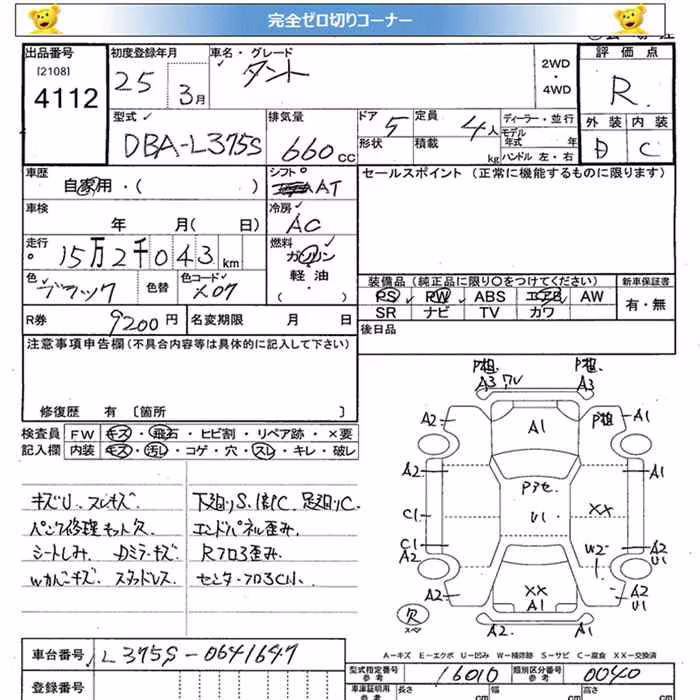 完全ゼロ切りコーナー
出品番号 初度登録年月 車名・グレード 2WD・4WD 評価点
[2108] 4112 25 3月 タント R
型式 排気量 ドア 5 定員 4人 ディーラー・並行 外装 内装
DBA-L375S 660cc 形状 積載 kg モデル年式 年 D C
ハンドル 左・右
車歴 シフト セールスポイント(正常に機能するものに限ります)
自家用・( ) AT
車検 冷房
年 月(日) AC
走行 燃料
15万2千043km ガソリン
軽油
( ・ )
色 色替 色コード 装備品(純正品に限り○をつけてください) 新車保証書
ブラック X07 PS PW ABS エアB AW 有・無
SR ナビ TV カワ
R券 9200円 名変期限 月 日 後日品
注意事項申告欄(不具合内容等は具体的に記入して下さい)
修復歴 有 [箇所 ]
検査員 FW キズ・飛石・ヒビ割・リペア跡・×要
記入欄 内装 キズ・汚レ・コゲ・穴・スレ・キレ・破レ
キズU、スレキズ 下廻りS、
パンク修理キット欠 エンドパネル歪み、
シートしみ、Dミラーキズ Rフロア歪み、
スタッドレス センターフロアC小、
A3 ワレ A3
A2 A1 A1
A2 A1
Pアセ
C1 U1 XX
C1 W2 A2
A2 U1
A2 XX A2
A1 U1
欠 スペア A2 A1
A-キズ E-エクボ U-凹み W-補修跡 S-サビ C-腐食 XX-交換済
車台番号 L375S-0641647 型式指定番号 参考 16010 類別区分番号 参考 0040
登録番号 車庫証明用 参考 長さ cm 幅 cm 高さ cm